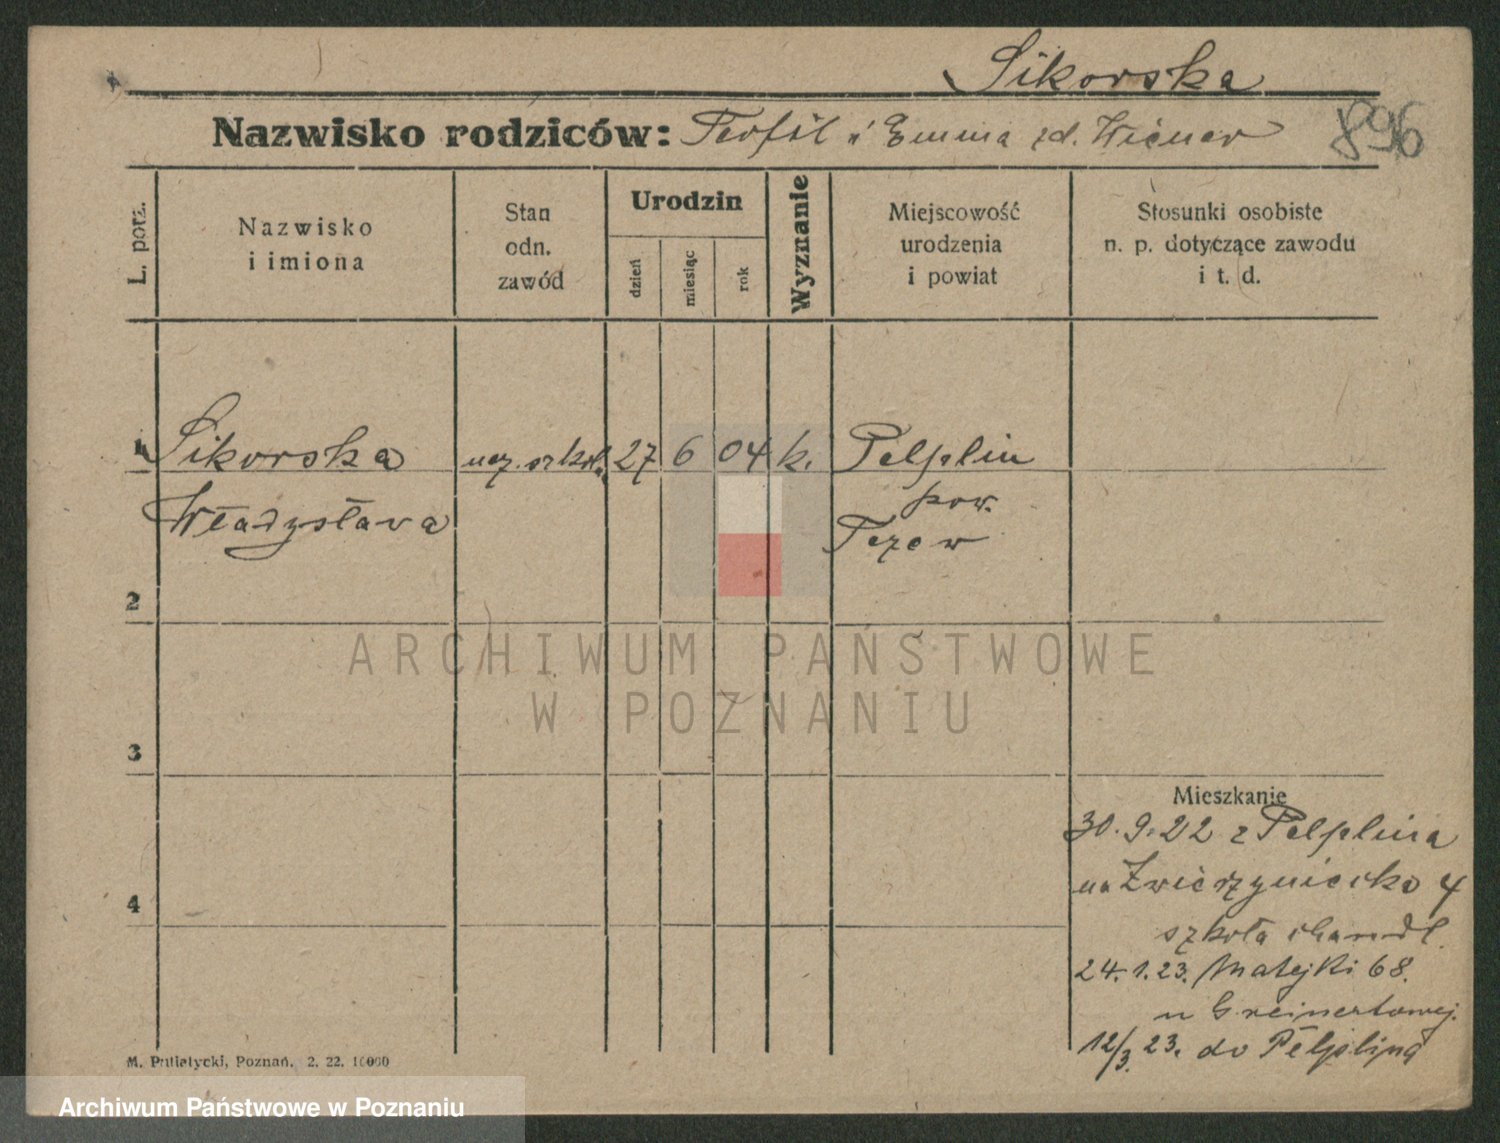 Sikorska
Nazwisko rodziców: Teofil i Emma zd. Wiener
896
L. porz.
Nazwisko
i imiona
Stan
odn.
zawód
Urodzin
dzień
miesiąc
rok
Wyznanie
Miejscowość
urodzenia
i powiat
Stosunki osobiste
n. p. dotyczące zawodu
i t. d.
1 Sikorska ucz. szkoł. 27 6 04 k. Pelplin
Władysława pow.
Tczew
2
ARCHIWUM PAŃSTWOWE
W POZNANIU
3
Mieszkanie
30.9.22 z Pelplina
na Zwierzyniecka 4
4
szkoła handl.
24.1.23. Matejki 68.
u Greinertowej.
12/3. 23. do Pelplina
M. Putiatycki, Poznań. 2. 22. 10000
Archiwum Państwowe w Poznaniu